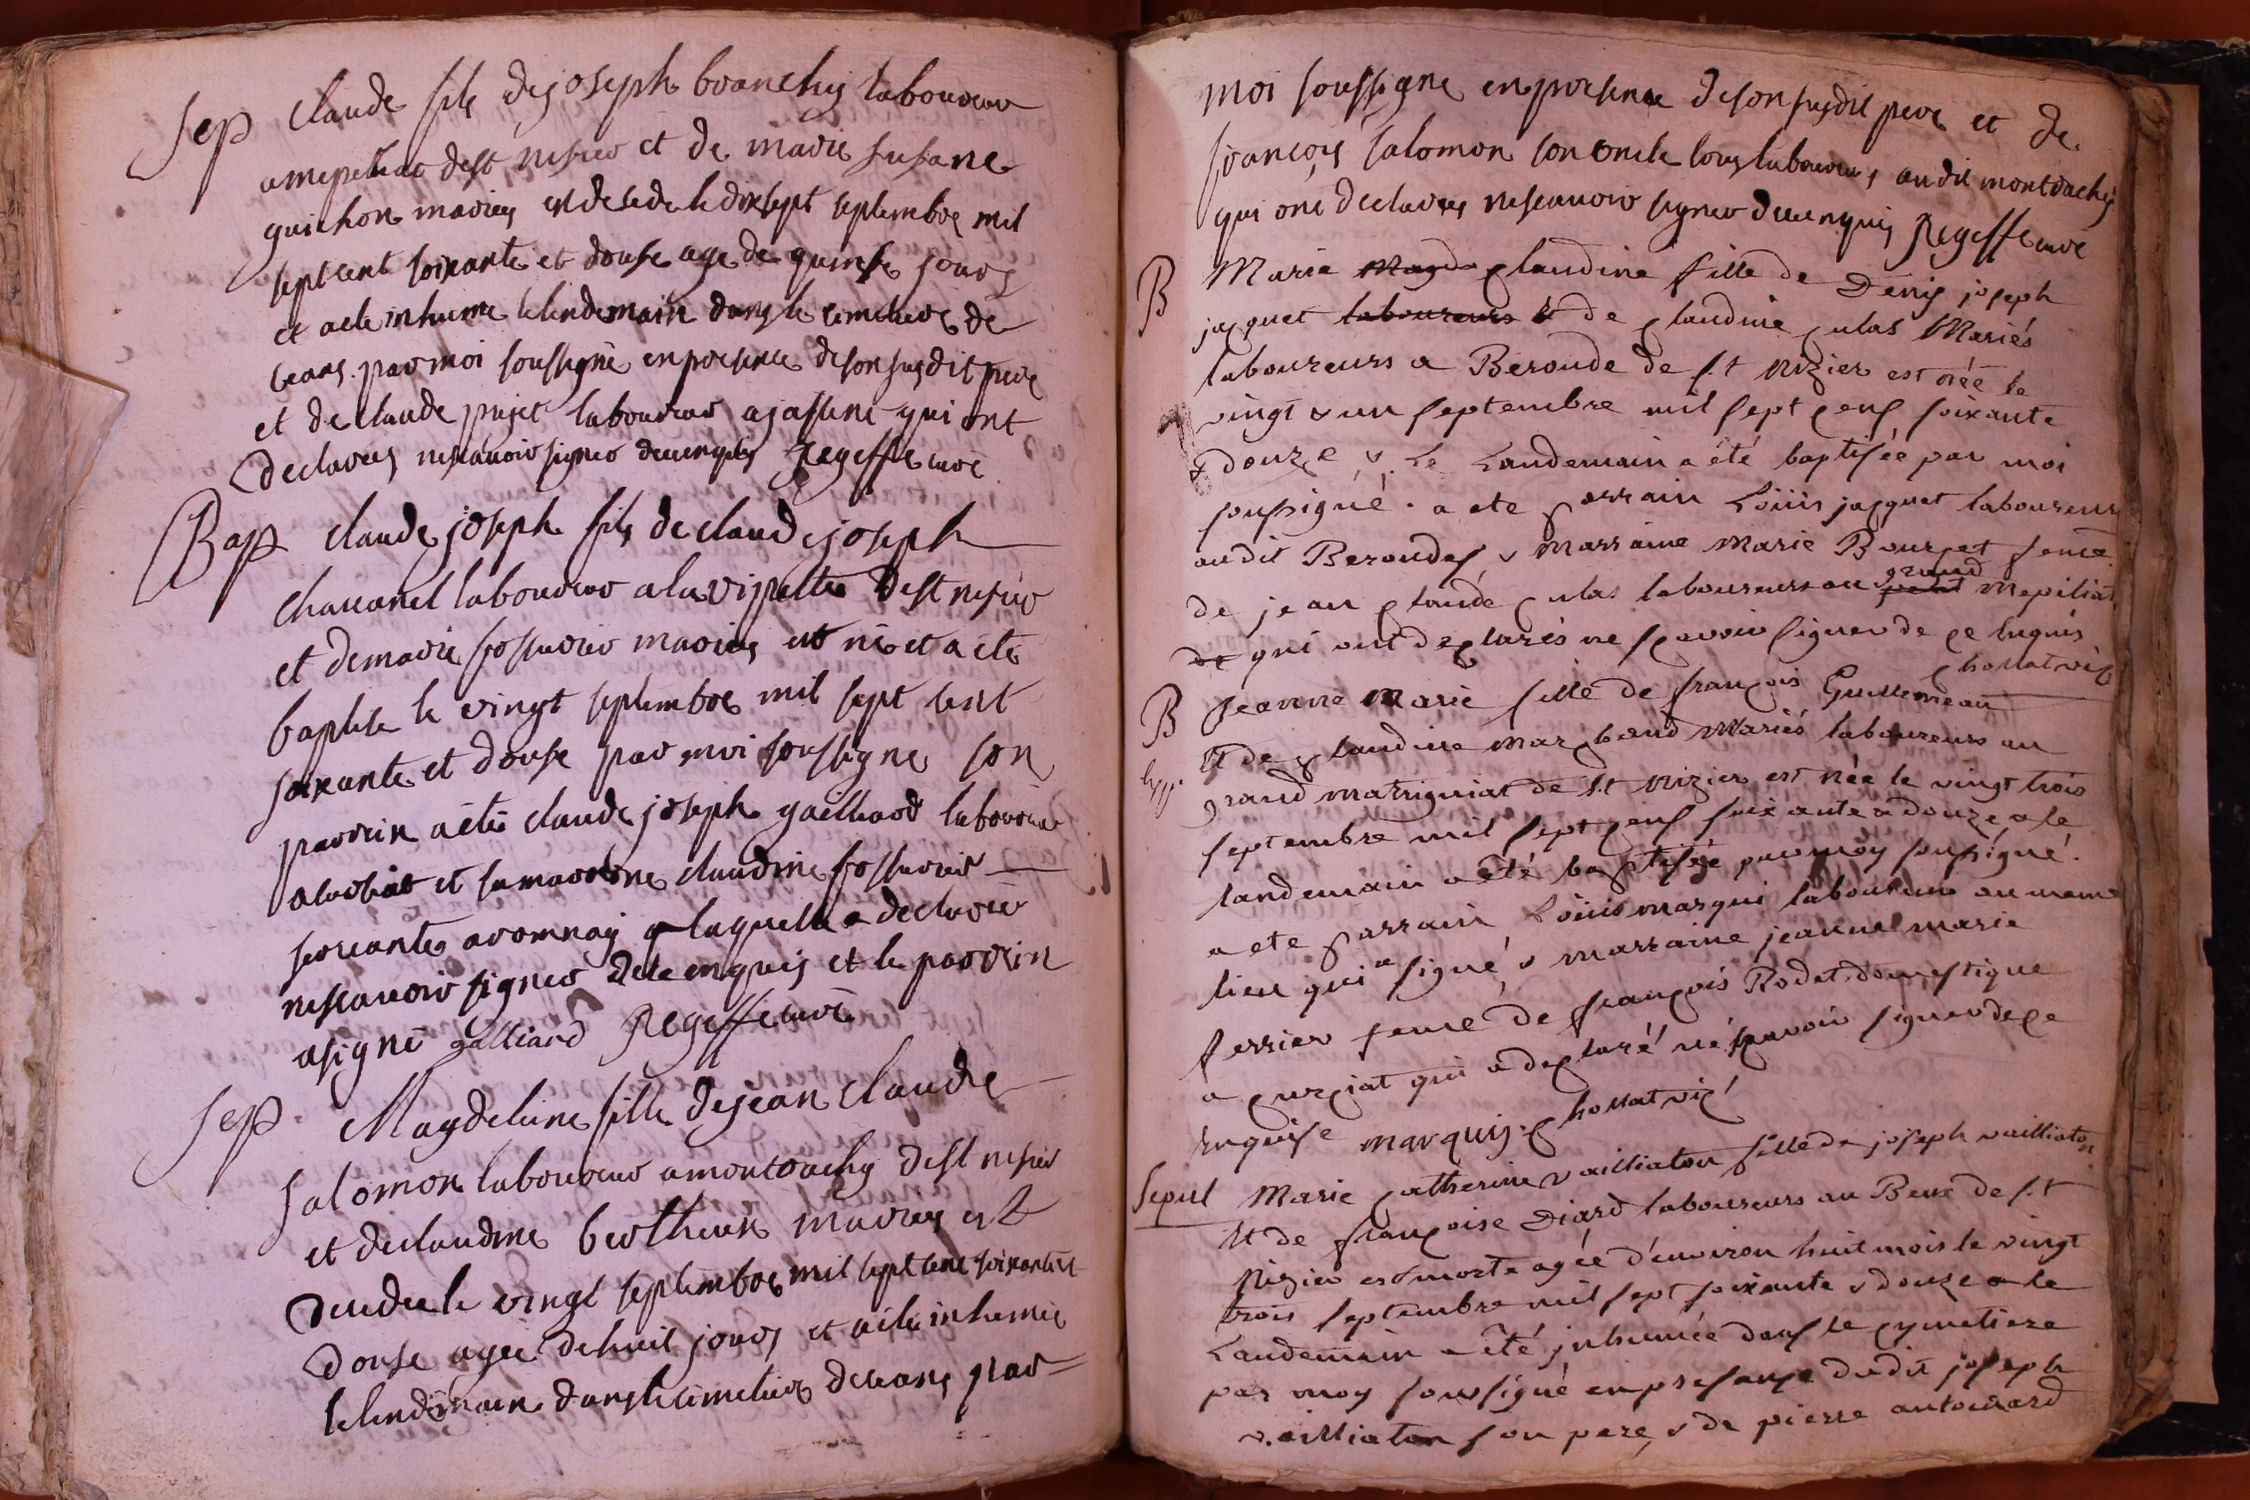 Sep Claude fils de joseph branchy laboureur
a mepilliat de st nisier et de marie susane
guichon mariés est decede le dixsept septembre mil
sept cent soixante et douse age de quinse jours
et a ete inhumé le lendemain dans le cimetiere de
ceans par moi soussigné en presence de son susdit pere
et de claude pujet laboureur a jassene qui ont
declarés ne scavoir signer de ce enquis Regeffe curé
Bap claude joseph fils de claude joseph
chavanel laboureur a la vipette de st nisier
et de marie fossurier mariés est né et a eté
baptise le vingt septembre mil sept cent
soixante et douse par moi soussigné son
parrein a été claude joseph gailliard laboureur
et sa marreine claudine fossurier
servante a romnay laquelle a declaré
ne scavoir signer de ce enquis et le parrein
a signé galliard Regeffe curé
Sep Magdeleine fille de jean claude
salomon laboureur a montrachy de st nisier
et de claudine berthean mariés est
decedee le vingt septembre mil sept cent soixante et
douse agée de huit jours et a ete inhumée
le lendemain dans le cimetiere de ceans par
moi soussigné en presence de son susdit pere et de
françois salomon son oncle tous laboureurs au dit montrachy
qui ont declarés ne scavoir signer de ce enquis Regeffe curé
B Marie Magd claudine fille de Denis joseph
jacquet laboureurs & de claudine culas Mariés
laboureurs a Beroude de s.t Nizier est née le
vingt & un septembre mil sept cens soixante
& douze & Le Landemain a été baptisée par moi
soussigné. a ete parrain Loüis jacquet laboureur
audit Beroudes & marraine Marie Bourcet feme
de jean claude culas laboureurs au petit grand Mepiliat
de qui ont declarés ne scavoir signer de ce Enquis
chollat vic
B Jeanne Marie fille de françois Guillemeau
Et de claudine Marchand Mariés laboureurs au
grand matrigniat de s.t Nizier est née le vingt trois
septembre mil sept cens soixante & douze & le
landemain a été baptisée par moy soussigné.
a ete parrain Loüis marqui laboureur au meme
lieu qui a signé & marraine jeanne marie
ferrier feme de françois Rodet domestique
a curciat qui a declaré ne scavoir signer de ce
Enquise marquis chollat vic
Sepul Marie Catherine vailliaton fille de joseph vailliaton
Et de françoise Diard laboureurs au Beux de s.t
Nizier est morte agée d'environ huit mois le vingt
trois septembre mil sept soixante & douze & le
Landemain a été inhumée dans le cymetiere
par moy soussigné en presance dudit joseph
vailliaton son pere & de pierre antouard